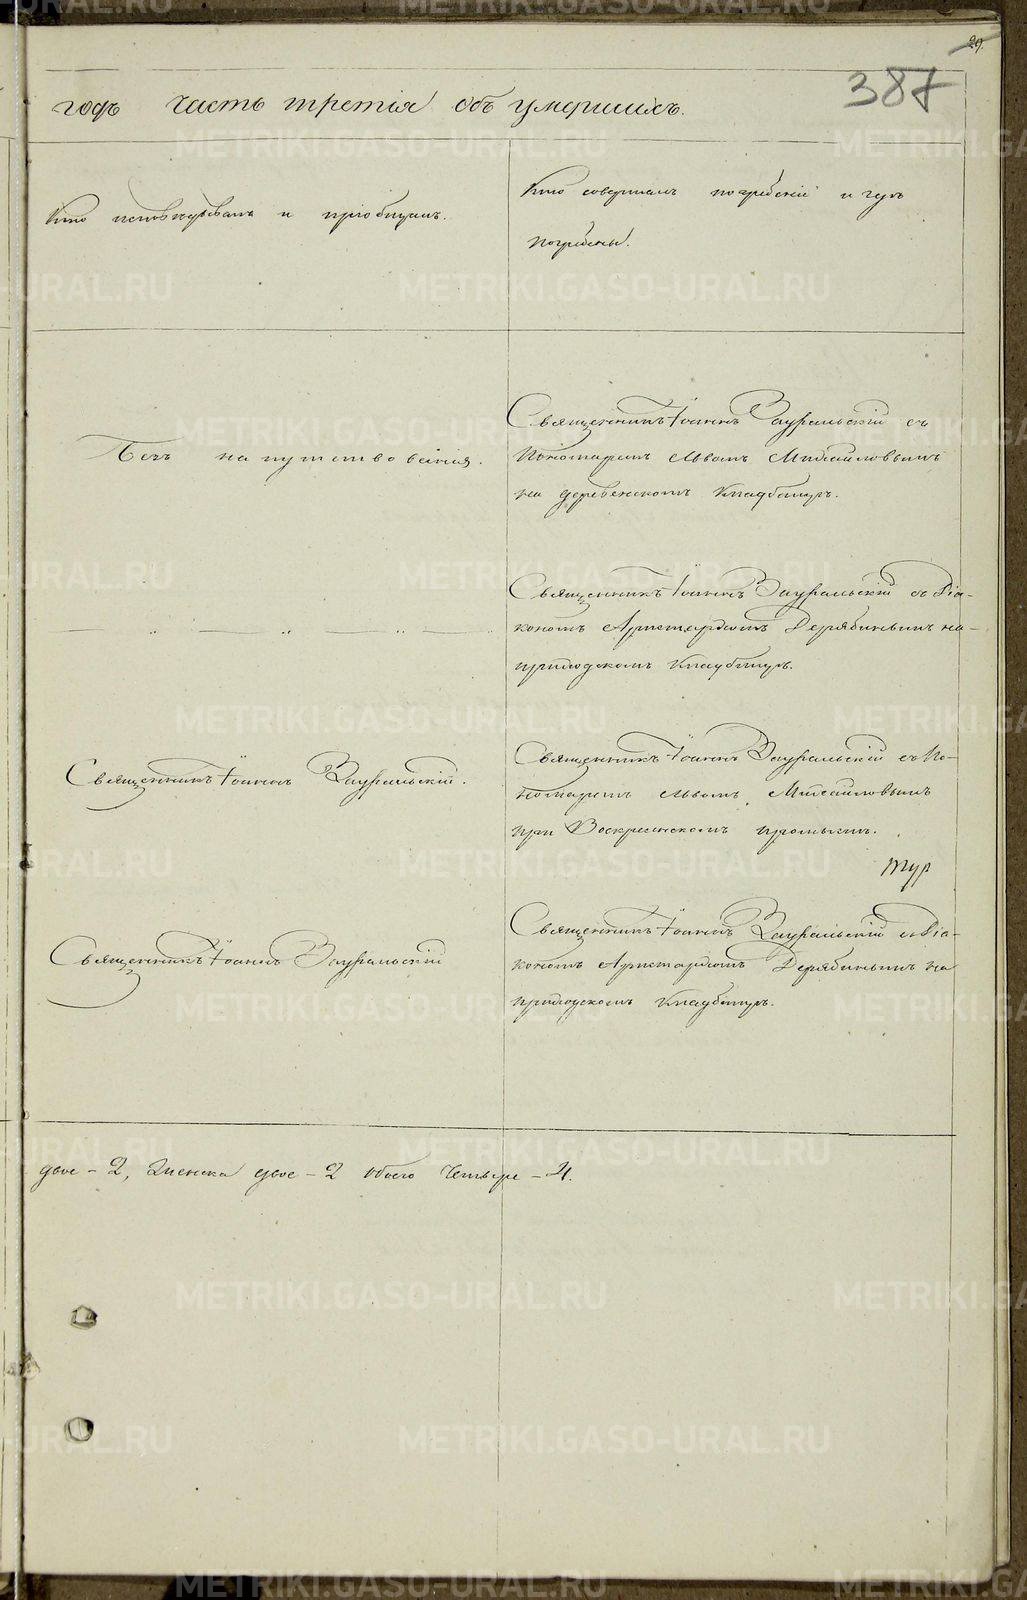 29.
387
годъ часть третія объ умершихъ.
Кто исповѣдывалъ и пріобщалъ.
Кто совершалъ погребеніе и гдѣ
погребены.
Безъ напутствованія.
Священникъ Іоаннъ Зауральскій съ
Пономаремъ Львомъ Михайловымъ
на деревенскомъ кладбищѣ.
— „ — „ — „ —
Священникъ Іоаннъ Зауральскій съ Діа-
кономъ Аристархомъ Дерябинымъ на
приходскомъ кладбищѣ.
Священникъ Іоаннъ Зауральскій.
Священникъ Іоаннъ Зауральскій съ По-
номаремъ Львомъ Михайловымъ
при Воскресенскомъ промыслѣ.
тур
Священникъ Іоаннъ Зауральскій
Священникъ Іоаннъ Зауральскій съ Діа-
кономъ Аристархомъ Дерябинымъ на
приходскомъ кладбищѣ.
двое - 2, женска двое - 2 обоего четверо - 4.
METRIKI.GASO-URAL.RU